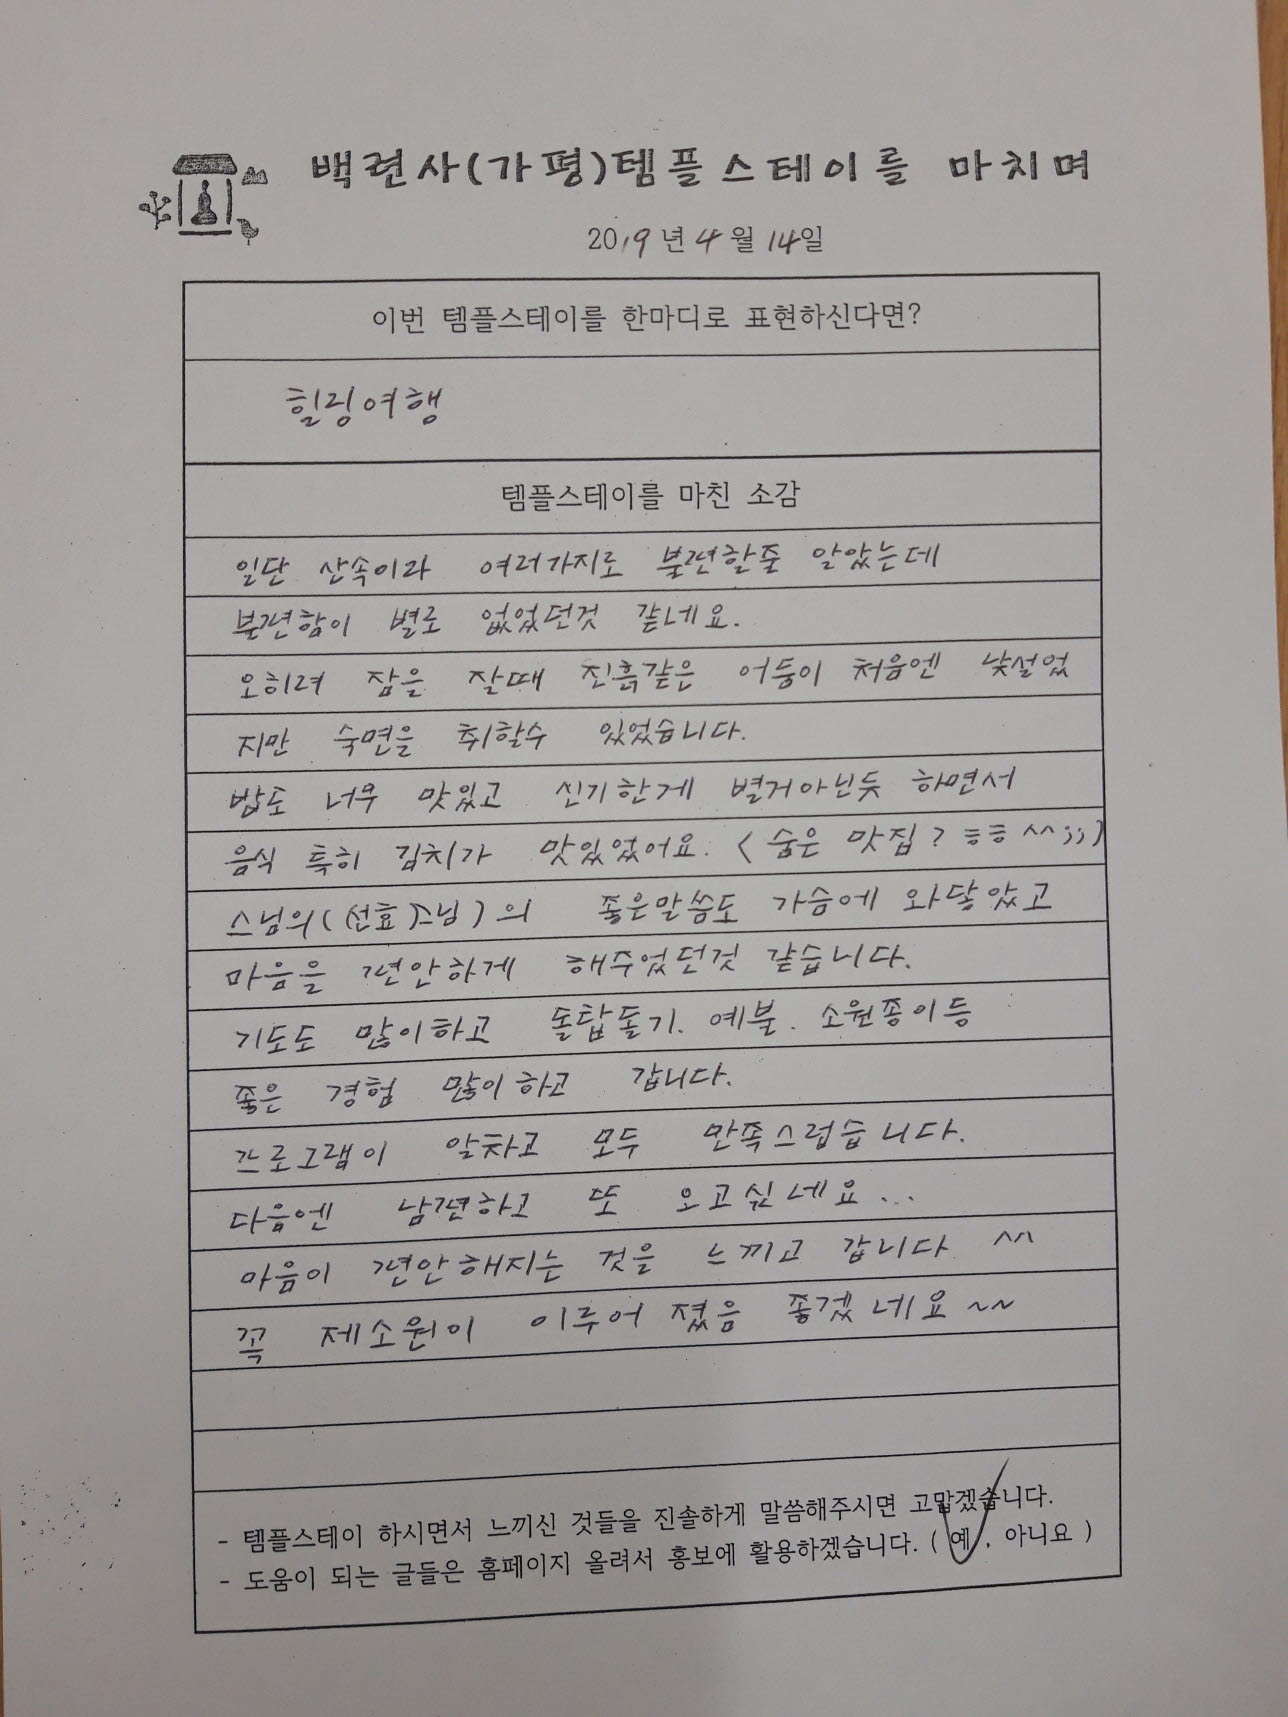 백련사(가평)템플스테이를 마치며
2019년 4월 14일
이번 템플스테이를 한마디로 표현하신다면?
힐링여행
템플스테이를 마친 소감
일단 산속이라 여러가지로 불편할줄 알았는데
불편함이 별로 없었던것 같네요.
오히려 잠을 잘때 진흙같은 어둠이 처음엔 낯설었
지만 숙면을 취할수 있었습니다.
밥도 너무 맛있고 신기한게 별거아닌듯 하면서
음식 특히 김치가 맛있었어요. (숨은 맛집? ㅎㅎ ^^;;)
스님의(선효스님)의 좋은말씀도 가슴에 와닿았고
마음을 편안하게 해주었던것 같습니다.
기도도 많이하고 돌탑돌기. 예불. 소원종이등
좋은 경험 많이하고 갑니다.
프로그램이 알차고 모두 만족스럽습니다.
다음엔 남편하고 또 오고싶네요...
마음이 편안해지는 것을 느끼고 갑니다 ^^
꼭 제소원이 이루어 졌음 좋겠네요~~
- 템플스테이 하시면서 느끼신 것들을 진솔하게 말씀해주시면 고맙겠습니다.
- 도움이 되는 글들은 홈페이지 올려서 홍보에 활용하겠습니다. ( 예 , 아니요 )